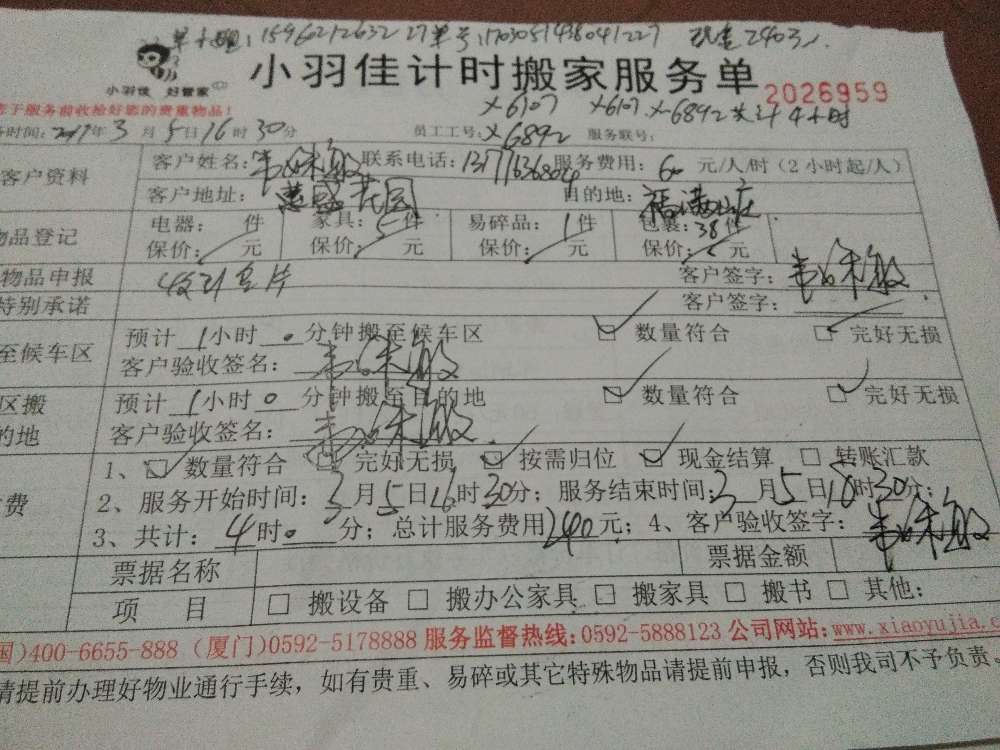 15960212632 27单号:1703051438041227
小羽佳 好管家
小羽佳计时搬家服务单
2026959
于服务前收捡好您的贵重物品!
X6107 X6107 X6892 共计4小时
时间: 2017年3月5日16时30分 员工工号: X6892 服务联号:
客户资料 客户姓名: 联系电话: 服务费用: 60 元/人/时(2小时起/人)
客户地址: 惠盛花园 目的地: 福满山庄
物品登记 电器: 1件 家具: 5件 易碎品: 1件 包裹: 38件
保价: 元 保价: 元 保价: 元 保价: 元
物品申报 客户签字:
特别承诺 客户签字:
至候车区 预计1小时0分钟搬至候车区 ☑ 数量符合 ☑ 完好无损
客户验收签名:
区搬 预计1小时0分钟搬至目的地 ☑ 数量符合 ☑ 完好无损
的地 客户验收签名:
1、☑ 数量符合 ☑ 完好无损 ☑ 按需归位 ☑ 现金结算 □ 转账汇款
费 2、服务开始时间: 3月5日16时30分; 服务结束时间: 3月5日18时30分;
3、共计: 4时0分; 总计服务费用240元; 4、客户验收签字:
票据名称 票据金额
项 目 □ 搬设备 □ 搬办公家具 □ 搬家具 □ 搬书 □ 其他:
国)400-6655-888 (厦门)0592-5178888 服务监督热线:0592-5888123 公司网站:www.xiaoyujia.c
请提前办理好物业通行手续,如有贵重、易碎或其它特殊物品请提前申报,否则我司不予负责。